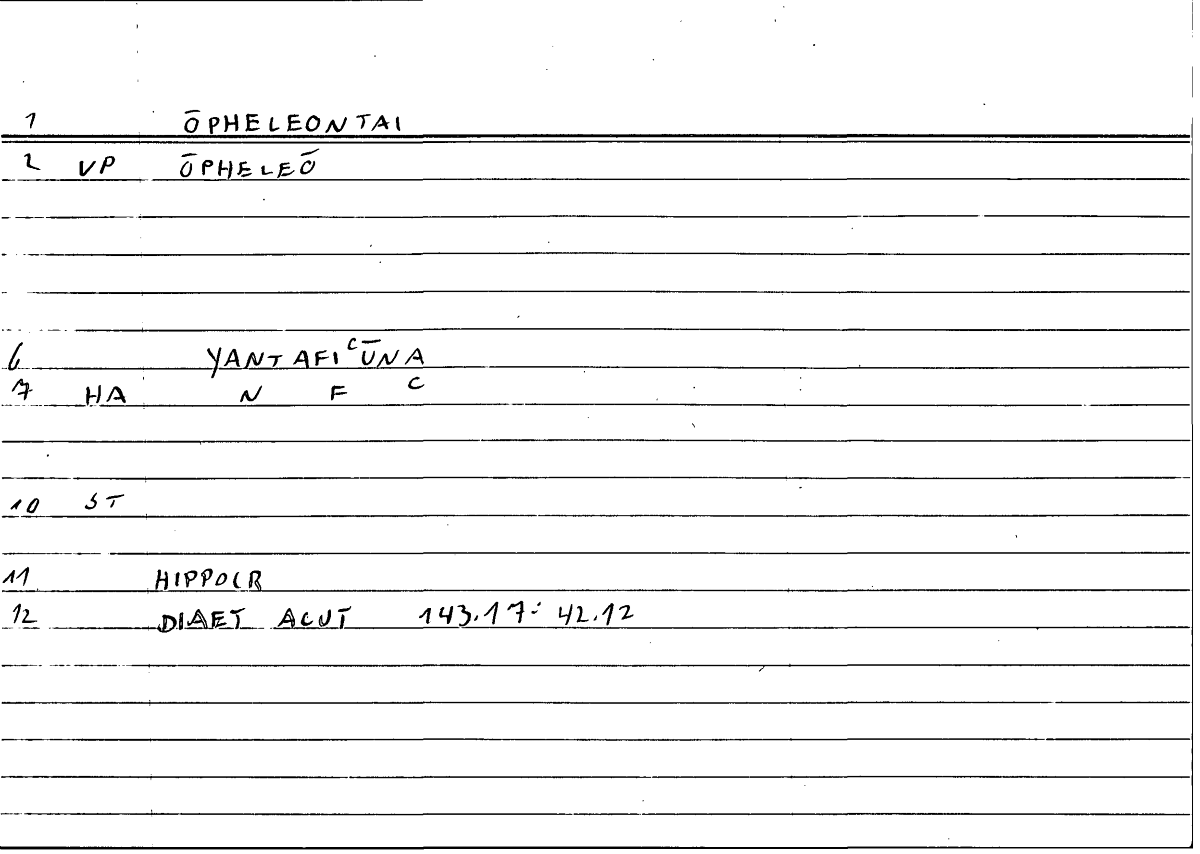 1 ŌPHELEONTAI
2 VP ŌPHELEŌ
6 YANTAFIᶜŪNA
7 HA N F C
10 ST
11 HIPPOCR
12 DIAET ACUT 143.17: 42.12